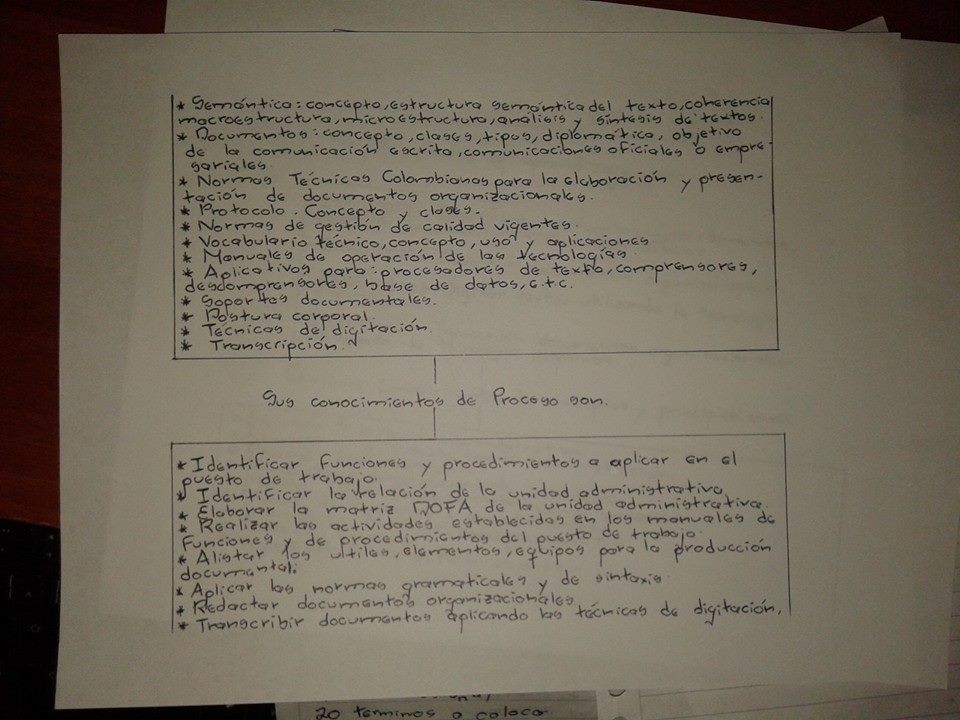 * Semántica: concepto, estructura semántica del texto, coherencia
macroestructura, microestructura, análisis y síntesis de textos.
* Documentos: concepto, clases, tipos, diplomática, objetivo
de la comunicación escrita, comunicaciones oficiales o empre-
sariales.
* Normas Técnicas Colombianas para la elaboración y presen-
tación de documentos organizacionales.
* Protocolo. Concepto y clases.
* Normas de gestión de calidad vigentes.
* Vocabulario técnico, concepto, uso y aplicaciones
* Manuales de operación de las tecnologías.
* Aplicativos para: procesadores de texto, comprensores,
descomprensores, base de datos, e.t.c.
* Soportes documentales.
* Postura corporal.
* Técnicas de digitación.
* Transcripción.
Sus conocimientos de Proceso son.
* Identificar funciones y procedimientos a aplicar en el
puesto de trabajo.
* Identificar la relación de la unidad administrativa
* Elaborar la matriz DOFA de la unidad administrativa
* Realizar las actividades establecidas en los manuales de
Funciones y de procedimientos del puesto de trabajo.
* Alistar los utiles, elementos, equipos para la producción
documental.
* Aplicar las normas gramaticales y de sintaxis.
* Redactar documentos organizacionales
* Transcribir documentos aplicando las técnicas de digitación,
20 terminos a colocar